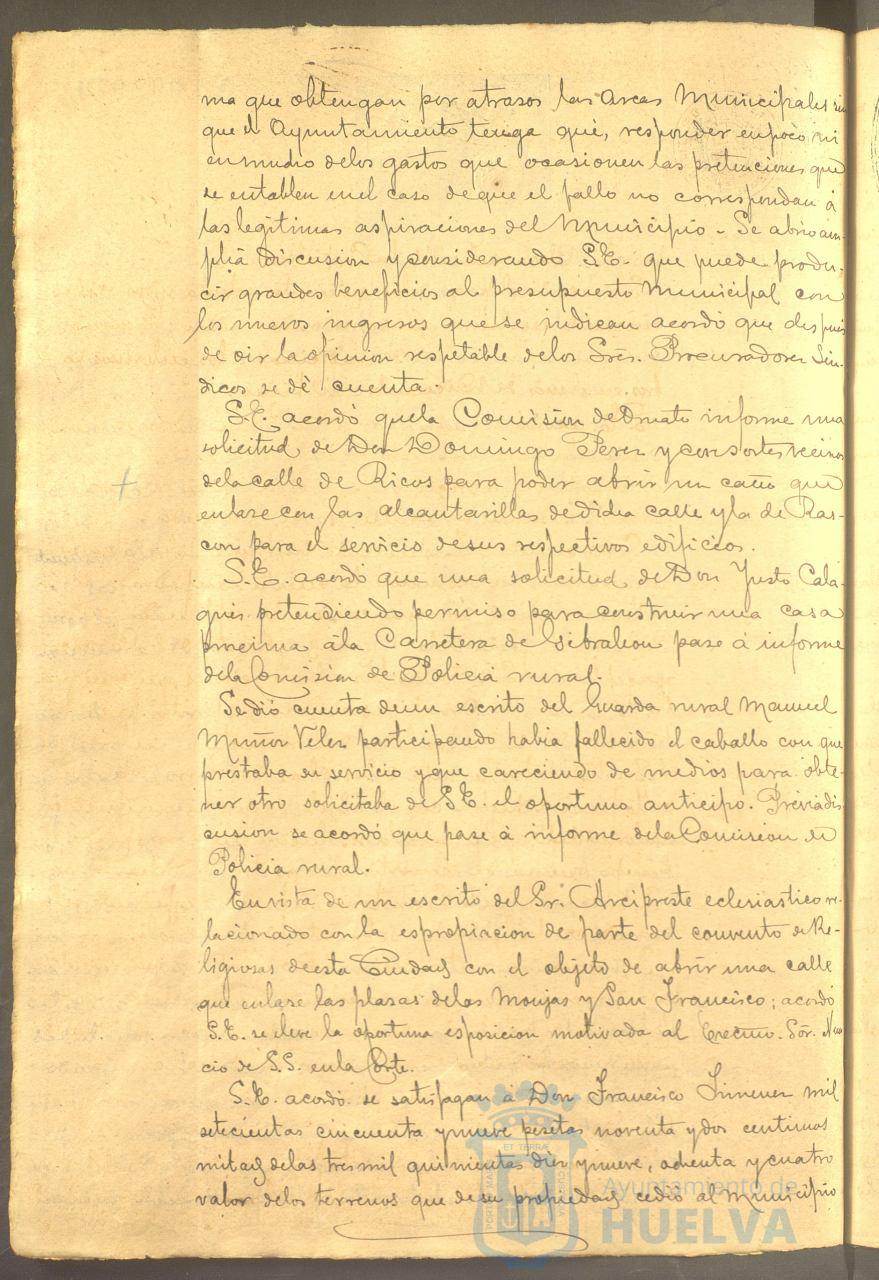 ma que obtengan por atrasos las arcas Municipales sin
que el Ayuntamiento tenga que, responder en poco ni
en mucho de los gastos que ocasionen las pretenciones que
se entablen en el caso de que el fallo no correspondan á
las legitimas aspiraciones del Municipio - Se abrio am-
plia discusion y considerando S.E. que puede produ-
cir grandes beneficios al presupuesto Municipal con
los nuevos ingresos que se indican acordó que despues
de oir la opinion respetable de los Sres. Procuradores Sin-
dicos se dé cuenta.
S.E. acordó que la Comisión de Ornato informe una
solicitud de Don Domingo Perez y consortes vecinos
de la calle de Ricos para poder abrir un caño que
enlase con las alcantarillas de dicha calle y la de Ras-
con para el servicio de sus respectivos edificios.
S.E. acordó que una solicitud de Don Justo Calá-
quis pretendiendo permiso para construir una casa
procima á la Carretera de Gibraleon pase á informe
de la Comisión de Policia rural.
Se dió cuenta de un escrito del Guarda rural Manuel
Muñoz Velez participando habia fallecido el caballo con que
prestaba su servicio y que careciendo de medios para obte-
ner otro solicitaba de S.E. el oportuno anticipo. Previa dis-
cusion se acordó que pase á informe de la Comision de
Policia rural.
En vista de un escrito del Sr. Arcipreste eclesiastico re-
lacionado con la espropiacion de parte del convento de Re-
ligiosas de esta Ciudad con el objeto de abrir una calle
que enlase las plasas de las Monjas y San Francisco; acordó
S.E. se eleve la oportuna esposicion motivada al Excmo. Sor. Nun
cio de S.S. en la Corte.
S.E. acordó se satisfagan á Don Francisco Jimenez mil
setecientas cincuenta y nueve pesetas noventa y dos centimos
mitad de las tres mil quinientas diez y nueve, ochenta y cuatro
valor de los terrenos que de su propiedad cedió al Municipio
Ayuntamiento de
HUELVA